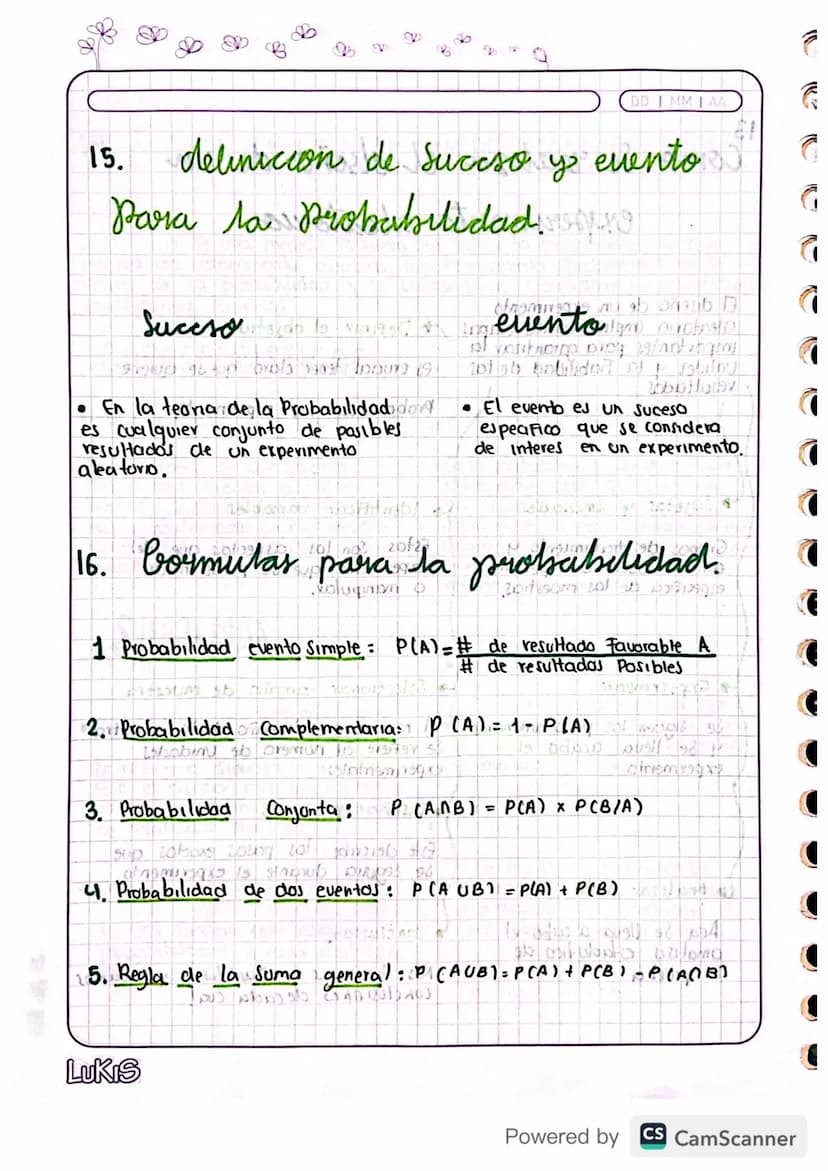 DD | MM | AA
15. definicion de Suceso y evento
para la probabilidad.
Suceso
evento
• En la teoria de la Probabilidad
es cualquier conjunto de posibles
resultados de un experimento
aleatorio.
• El evento es un suceso
especifico que se considera
de interes en un experimento.
16. Formulas para la probabilidad.
1 Probabilidad evento simple: P(A)= # de resultado Favorable A
# de resultados Posibles
2. Probabilidad Complementaria: P(A) = 1 - P(A)
3. Probabilidad Conjonta: P(A∩B) = P(A) x P(B/A)
4. Probabilidad de dos eventos: P(A UB) = P(A) + P(B)
5. Regla de la suma general: P(AUB) = P(A) + P(B) - P(A∩B)
LUKIS
Powered by CS CamScanner